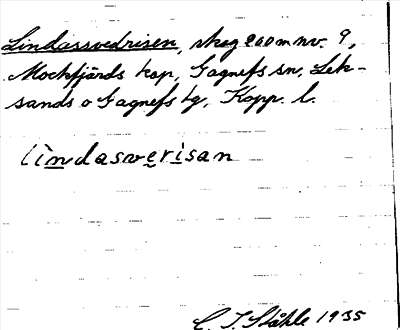 Lindassvedrisen, skog 200 m nv. 9,
Mockfjärds kap, Gagnefs sn, Lek-
sands o Gagnefs tg, Kopp. l.
lìndasverìsan
C. I. Ståhle 1935